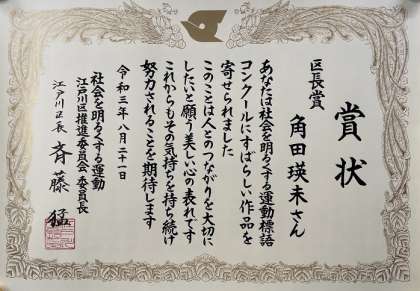 賞状
区長賞
角田瑛未さん
あなたは社会を明るくする運動標語
コンクールにすばらしい作品を
寄せられました
このことは人とのつながりを大切に
したいと願う美しい心の表れです
これからもその気持ちを持ち続け
努力されることを期待します
令和三年八月二十一日
社会を明るくする運動
江戸川区推進委員会委員長
江戸川区長 斉藤猛